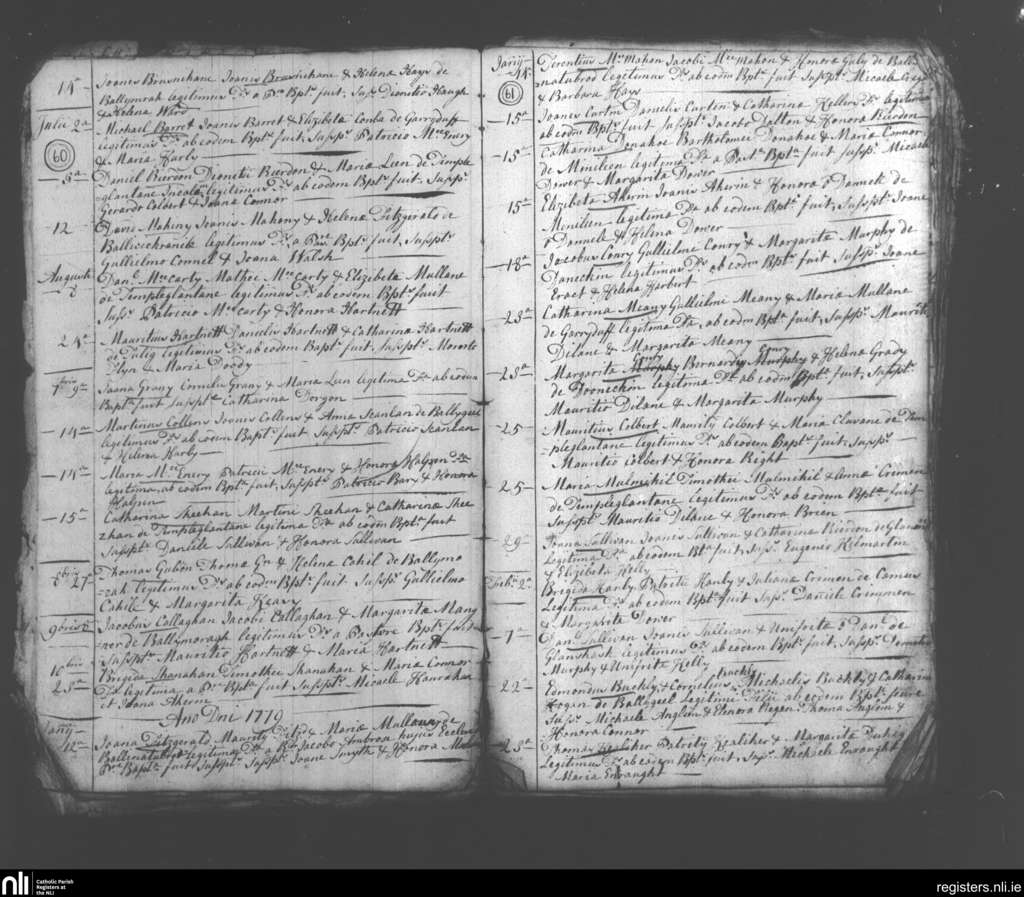 14ª Joanes Brusnihane Joanis Brusnihane & Helena Hays de
Ballymrah legitimus Dr a Pre Bptˢ fuit, Susp Dionitio Haugh
& Helena Ward
Julii 2ª Michael Barret Joanis Barret & Elizibeta Conba de Garryduff
legitimus Dr ab eodem Bptˢ fuit, Suspptˢ Patricio McEnery
60
& Maria Harly
Daniel Burdon Dionitii Burdon & Mariæ Leen de Temple
=glantane Incola legitimus Dr ab eodem Bptˢ fuit. Susspˢ
Gerardo Colbert & Joana Connor
12 David Mahony Joanis Mahony & Helena Fitzgerald de
legitimus Dr a Pre Bptˢ fuit, Suspptˢ
Gullielmo Connel & Joana Walsh
Augusti 8 Danl McCarty Mathei McCarty & Elizibeta Mullane
de Templeglantane legitimus Dr ab eodem Bptˢ fuit
Suspˢ Patricio McCarty & Honora Hartnett
24ª Mauritius Hartnett Danielis Hartnett & Catharina Hartnett
de Tulig legitimus Dr ab eodem Baptˢ fuit, Suspptˢ
Flyn & Maria Doody
7bris 9ª Joana Grany Cornelii Grany & Maria Leen legitima Dr ab eodem
Baptˢ fuit Susppte Catharina
14ª Martinus Collens Joanis Collens & Anna Scanlan de Ballyguel
legitimus Dr ab eodem Baptˢ fuit Suspptˢ Patricio Scanlan
& Helena Harly
14ª Maria McEnery Patricii McEnery & Honora Halpen Dr
legitima, ab eodem Bptª fuit, Suspptˢ Patricio Bary & Honora
Halpen
15ª Catharina Sheehan Martini Sheehan & Catharinæ Shee
=han de Templeglantane legitima Dr ab eodm Bptª fuit
Suspptˢ Daniele Sullivan & Honora Sullivan
8bris 27ª Thomas & Helena Cahil de Ballymo
=rah legitimus Dr ab eodem Bptˢ fuit. Susspˢ Gullielmo
Cahil & Margarita Heavy
9bris 8 Jacobus Callaghan Jacobi Callaghan & Margaritæ Mang
=ner de Ballymoragh legitimus Dr a Pastore Bptˢ fuit
Suspptˢ Mauritio Hartnett & Maria Hartnett
10bris 25ª Brigida Shanahan Timothei Shanahan & Mariæ Connor
Dr legitima, a Pre Bptª fuit Suspptˢ Micaele Hanrahan
et Joana Aherin
Ano Dni 1779
Janij 12ª Joana Fitzgerald Mauritij Fitzd & Mariæ Mullane de
Ballenatubrid legitima Dr a Rdo Jacobo Ambrose hujus Eccliæ
Pre Baptª fuit Suspptˢ Joane Smyth & Honora
Janij 14ª Terentius McMahon Jacobi McMahon & Honora Galy de Ball=
61
=natubrod legitimus Dr ab eodm Bptˢ fuit Suspptˢ Micaele
& Barbara Hays
15ª Joanes Curtin Danielis Curtin & Catharina Kellier Dr legitimus
ab eodm Bptˢ fuit Suspptˢ Jacobo Dalton & Honora Burdon
15ª Catharina Donahoe Bartholomei Donahoe & Mariæ Connor
de Monileen legitima Dr a Paste Bptª fuit Suspptˢ Micaele
Dower & Margarita Dower
15ª Elizibeta Aherin Joanis Aherin & Honora O Donnell de
Monileen legitima Dr ab eodem Bptª fuit, Suspptˢ Joane
O Donnell & Helena Dower
18ª Jacobus Coury Gullielmi Coury & Margarita Murphy de
legitimus Dr ab eodm Bptˢ fuit Suspptˢ Joane
& Helena Harbert
23ª Catharina Meany Gullielmi Meany & Maria Mullane
de Garryduff legitima Dr, ab eodm Bptª fuit, Suspptˢ Mauritio
Dilane & Margarita Meany
25ª Margarita Murphy Bernardi Murphy & Helena Grady
de legitima Dr ab eodm Bptª fuit, Suspptˢ
Mauritio Dilane & Margarita Murphy
25 Mauritius Colbert Mauritij Colbert & Maria Clavane de Tem
=pleglantane legitimus Dr ab eodem Baptˢ fuit, Suspptˢ
Mauritio Colbert & Honora Right
25 Maria Mulmihil Timothei Mulmihil & Annæ Cremin
de Templeglantane legitimus Dr ab eodem Bptˢ fuit
Suspptˢ Mauritio Dilane & Honora Breen
29 Joana Sullivan Joanis Sullivan & Catharina Riordon de
legitima Dr ab eodem Btª fuit, Suspˢ Eugenio Helmarton
& Elizibeta Kelly
Feb. 2ª Brigida Hanly Patritii Hanly & Juliana Cremen de Camus
legitima Dr ab eodem Bptª fuit Suspˢ Daniele Cremmen
& Margarita Dower
7ª Dan Sullivan Joanis Sullivan & Unifrite O Danl de
Glanshask legitimus Dr ab eodem Bptˢ fuit, Suspptˢ
Murphy & Unifrite Kelly
Buckly
22ª Edmondus Buckly & Cornelius Michaelis Buckly & Catharina
Hogan de Ballyguel legitimi Filii ab eodem Bptˢ fuere
Suspˢ Michaele Anglem & Elenora Regen: Thoma Anglem &
Honora Connor
25ª Thomas Kealiher Patritij Kealiher & Margarita Duhig
legitimus Dr ab eodem Bptˢ fuit, Suspˢ Michaele Enraught
Maria Enraught
nli
Catholic Parish
Registers at
the NLI
registers.nli.ie